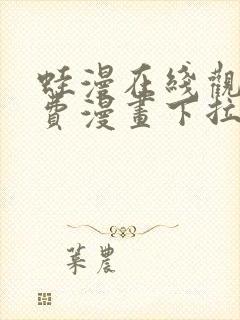 蛙漫在綫觀
費漫畫下拉
葉農